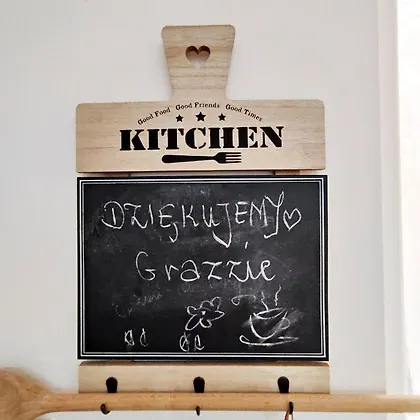 Good Food Good Friends Good Times
KITCHEN
DZIĘKUJEMY
Grazzie